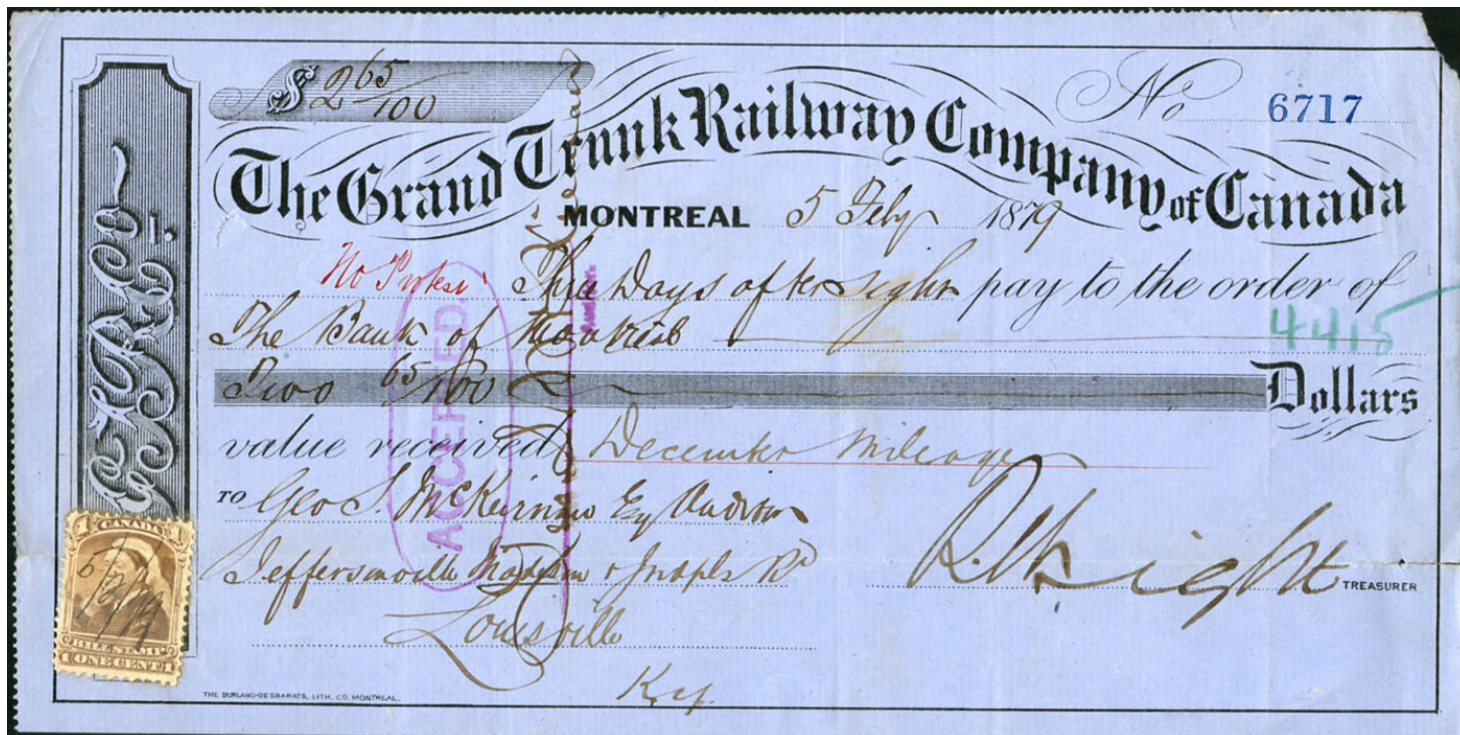 $ 2 65/100
No 6717
The Grand Trunk Railway Company of Canada
MONTREAL 5 Feby 1879
No Protest Three Days after sight pay to the order of
The Bank of Montreal
4415
Two 65/100 Dollars
value received December Mileage
TO Geo S. McKiernan Esq Auditor
Jeffersonville Madison & Inapls Rd
Louisville
Ky.
R Wright TREASURER
G.T.R. Co.
ACCEPTED
CANADA
1 1
5/2/79
BILL STAMP
1 ONE CENT 1
THE BURLAND-DESBARATS, LITH. CO. MONTREAL.